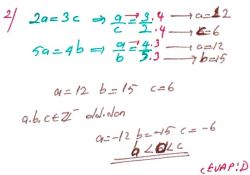 2) 2a=3c ⇒ a/c = 3/2 .4/.4 → a=12 → c=6
5a=4b ⇒ a/b = 4/5 .3/.3 → a=12 → b=15
a=12 b=15 c=6
a.b.c∈Z⁻ olduğundan
a=-12 b=-15 c=-6
b<a<c
CEVAP:D